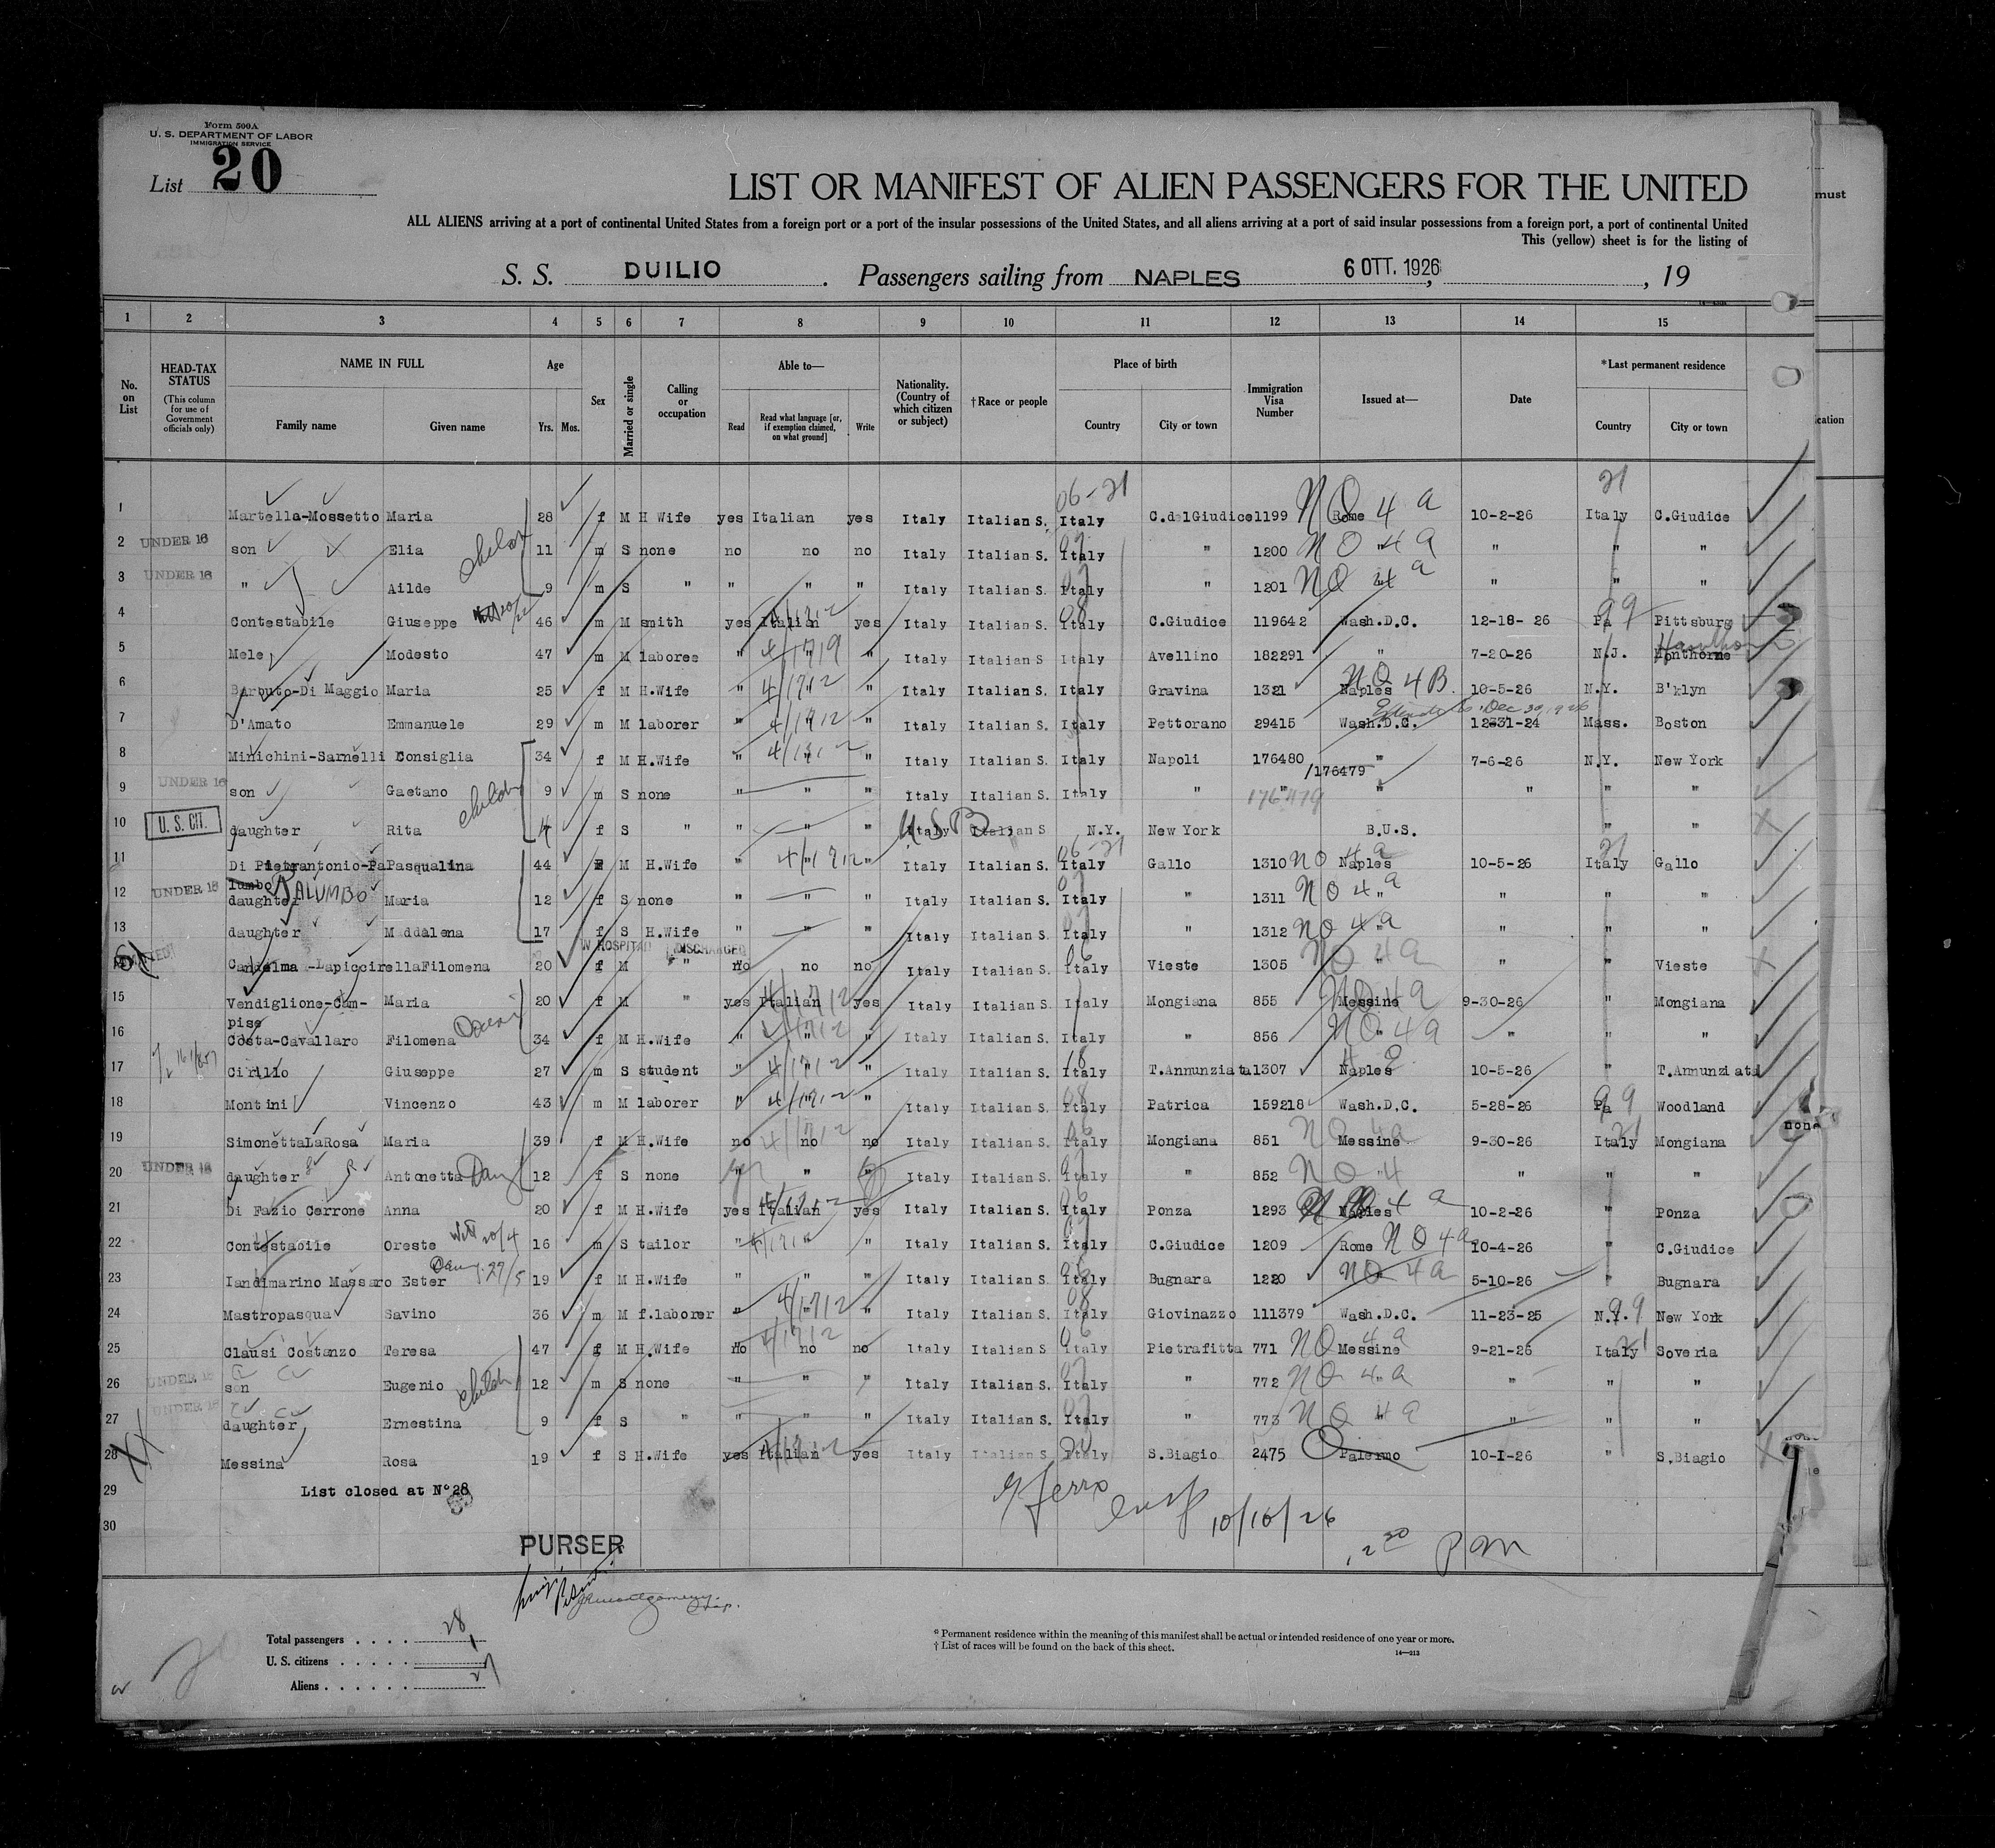 Form 500A
U. S. DEPARTMENT OF LABOR
IMMIGRATION SERVICE
List 20
LIST OR MANIFEST OF ALIEN PASSENGERS FOR THE UNITED
must
ALL ALIENS arriving at a port of continental United States from a foreign port or a port of the insular possessions of the United States, and all aliens arriving at a port of said insular possessions from a foreign port, a port of continental United
This (yellow) sheet is for the listing of
S. S. DUILIO. Passengers sailing from NAPLES 6 OTT. 1926, , 19
1 2 3 4 5 6 7 8 9 10 11 12 13 14 15
No. on List
HEAD-TAX STATUS (This column for use of Government officials only)
NAME IN FULL Family name Given name
Age Yrs. Mos.
Sex
Married or single
Calling or occupation
Able to— Read Read what language [or, if exemption claimed, on what ground] Write
Nationality. (Country of which citizen or subject)
†Race or people
Place of birth Country City or town
Immigration Visa Number
Issued at—
Date
*Last permanent residence Country City or town
cation
06-21 21
1 Martella-Mossetto Maria 28 f M H Wife yes Italian yes Italy Italian S. Italy C.delGiudice 1199 NO 4 a Rome 10-2-26 Italy C.Giudice
2 UNDER 16 son Elia 11 m S none no no no Italy Italian S. Italy " 1200 NO 4 a " " " "
3 UNDER 16 " Ailde 9 m S " " " " Italy Italian S. Italy " 1201 NO 4 a " " " "
4 Contestabile Giuseppe 46 m M smith yes Italian yes Italy Italian S. Italy C.Giudice 119642 Wash.D.C. 12-18- 26 Pa Pittsburg
5 Mele Modesto 47 m M laboree " " Italy Italian S Italy Avellino 182291 " 7-20-26 N.J.
6 Barbuto-Di Maggio Maria 25 f M H.Wife " " " Italy Italian S. Italy Gravina 1321 NO 4B Naples 10-5-26 N.Y. B'klyn
7 D'Amato Emmanuele 29 m M laborer " " " Italy Italian S. Italy Pettorano 29415 Wash.D.C. 12-31-24 Mass. Boston
8 Minichini-Sarnelli Consiglia 34 f M H.Wife " " " Italy Italian S. Italy Napoli 176480 " 7-6-26 N.Y. New York
/176479
9 UNDER 16 son Gaetano 9 m S none " " " Italy Italian S. Italy " 176479 " " " "
10 U. S. CIT. daughter Rita 4 f S " " " " Italy USB Italian S N.Y. New York B.U.S. " "
11 Di Pietrantonio-Pa Pasqualina 44 M H.Wife " " Italy Italian S. Italy Gallo 1310 NO 4a Naples 10-5-26 Italy Gallo
lumbo PALUMBO
12 UNDER 16 daughter Maria 12 f S none " " " Italy Italian S. Italy " 1311 NO 4a " " " "
13 daughter Maddalena 17 f S H.Wife " " " Italy Italian S. Italy " 1312 NO 4a " " " "
IN HOSPITAL DISCHARGED
Candelma -Lapiccirella Filomena 20 f M " no no no Italy Italian S. Italy Vieste 1305 NO 4a " " " Vieste
15 Vendiglione-Cam- Maria 20 f M " yes Italian yes Italy Italian S. Italy Mongiana 855 NO 4a Messine 9-30-26 " Mongiana
pise
16 Costa-Cavallaro Filomena 34 f M H.Wife " " " Italy Italian S. Italy " 856 NO 4a " " " "
17 Cirillo Giuseppe 27 m S student " " " Italy Italian S. Italy T.Annunziata 1307 Naples 10-5-26 " T.Annunziata
18 Montini Vincenzo 43 m M laborer " " " Italy Italian S. Italy Patrica 159218 Wash.D.C. 5-28-26 Pa Woodland
19 Simonetta LaRosa Maria 39 f M H.Wife no no no Italy Italian S. Italy Mongiana 851 NO 4a Messine 9-30-26 Italy Mongiana none
20 UNDER 16 daughter Antonetta 12 f S none " " " Italy Italian S. Italy " 852 NO 4 " " " "
21 Di Fazio Cerrone Anna 20 f M H.Wife yes Italian yes Italy Italian S. Italy Ponza 1293 Naples 4 a 10-2-26 " Ponza
22 Contestabile Oreste 16 m S tailor " " Italy Italian S. Italy C.Giudice 1209 Rome NO 4a 10-4-26 " C.Giudice
23 Iandimarino Massaro Ester 19 f M H.Wife " " " Italy Italian S. Italy Bugnara 1220 NO 4a 5-10-26 " Bugnara
24 Mastropasqua Savino 36 m M f.laborer " " " Italy Italian S. Italy Giovinazzo 111379 Wash.D.C. 11-23-25 N.Y. New York
25 Clausi Costanzo Teresa 47 f M H.Wife no no no Italy Italian S Italy Pietrafitta 771 NO 4a Messine 9-21-26 Italy Soveria
26 UNDER 16 son Eugenio 12 m S none " " " Italy Italian S. Italy " 772 NO 4a " " " "
27 UNDER 16 daughter Ernestina 9 f S " " " " Italy Italian S. Italy " 773 NO 4a " " " "
28 Messina Rosa 19 f S H.Wife yes Italian yes Italy Italian S. Italy S.Biagio 2475 Palermo 10-I-26 " S.Biagio
29 List closed at N° 28
30
10/16/26
PM
PURSER
Total passengers . . . . 28
U. S. citizens . . . . . 1
Aliens . . . . . . 27
* Permanent residence within the meaning of this manifest shall be actual or intended residence of one year or more.
† List of races will be found on the back of this sheet.
14—213